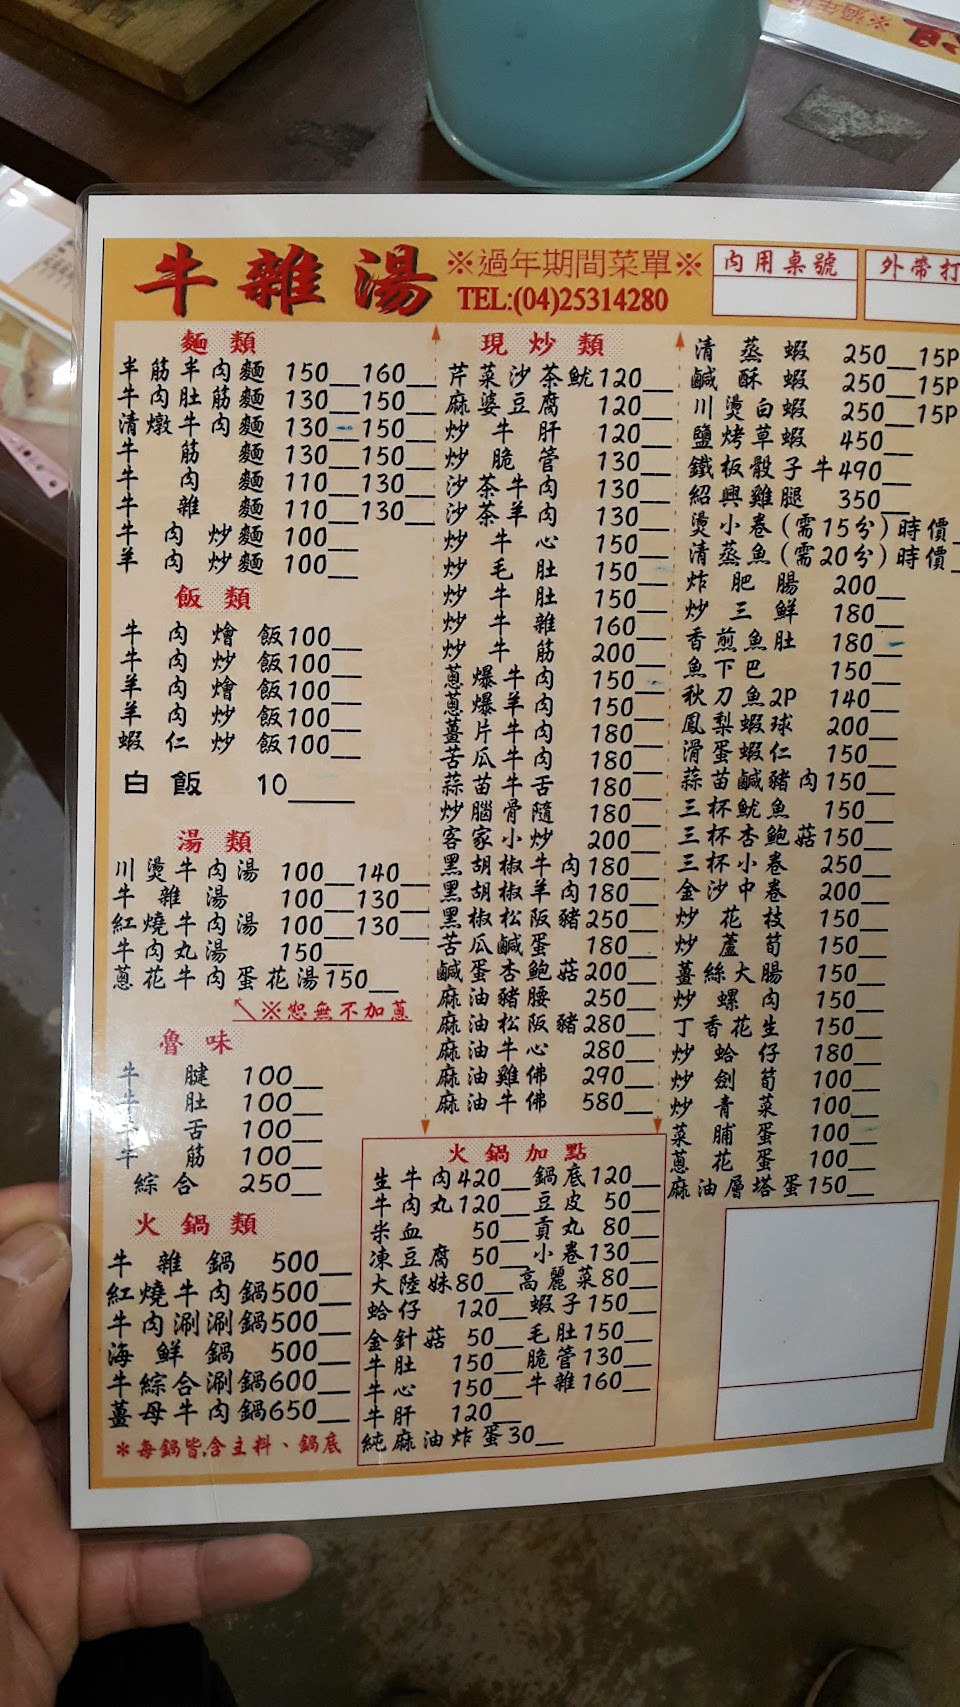 牛雜湯
※過年期間菜單※
TEL:(04)25314280
內用桌號
外帶打
麵類
半筋半肉麵 150__160__
牛肉肚筋麵 130__150__
清燉牛肉麵 130__150__
牛筋麵 130__150__
牛肉麵 110__130__
牛雜麵 110__130__
牛肉炒麵 100__
羊肉炒麵 100__
飯類
牛肉燴飯100__
牛肉炒飯100__
羊肉燴飯100__
羊肉炒飯100__
蝦仁炒飯100__
白飯 10____
湯類
川燙牛肉湯 100__140__
牛雜湯 100__130__
紅燒牛肉湯 100__130__
牛肉丸湯 150__
蔥花牛肉蛋花湯150__
※恕無不加蔥
魯味
牛腱 100__
牛肚 100__
牛舌 100__
牛筋 100__
綜合 250__
火鍋類
牛雜鍋 500__
紅燒牛肉鍋500__
牛肉涮涮鍋500__
海鮮鍋 500__
牛綜合涮鍋600__
薑母牛肉鍋650__
＊每鍋皆含主料、鍋底
現炒類
芹菜沙茶魷120__
麻婆豆腐 120__
炒牛肝 120__
炒脆管 130__
沙茶牛肉 130__
沙茶羊肉 130__
炒牛心 150__
炒毛肚 150__
炒牛肚 150__
炒牛雜 160__
炒牛筋 200__
蔥爆牛肉 150__
蔥爆羊肉 150__
薑片牛肉 180__
苦瓜牛肉 180__
蒜苗牛舌 180__
炒腦骨隨 180__
客家小炒 200__
黑胡椒牛肉180__
黑胡椒羊肉180__
黑椒松阪豬250__
苦瓜鹹蛋 180__
鹹蛋杏鮑菇200__
麻油豬腰 250__
麻油松阪豬280__
麻油牛心 280__
麻油雞佛 290__
麻油牛佛 580__
火鍋加點
生牛肉420__鍋底120__
牛肉丸120__豆皮 50__
米血 50__貢丸 80__
凍豆腐 50__小卷130__
大陸妹80__高麗菜80__
蛤仔 120__蝦子150__
金針菇 50__毛肚150__
牛肚 150__脆管130__
牛心 150__牛雜160__
牛肝 120__
純麻油炸蛋30__
清蒸蝦 250__15P
鹹酥蝦 250__15P
川燙白蝦 250__15P
鹽烤草蝦 450__
鐵板骰子牛490__
紹興雞腿 350__
燙小卷(需15分)時價_
清蒸魚(需20分)時價_
炸肥腸 200__
炒三鮮 180__
香煎魚肚 180__
魚下巴 150__
秋刀魚2P 140__
鳳梨蝦球 200__
滑蛋蝦仁 150__
蒜苗鹹豬肉150__
三杯魷魚 150__
三杯杏鮑菇150__
三杯小卷 250__
金沙中卷 200__
炒花枝 150__
炒蘆筍 150__
薑絲大腸 150__
炒螺肉 150__
丁香花生 150__
炒蛤仔 180__
炒劍筍 100__
炒青菜 100__
菜脯蛋 100__
蔥花蛋 100__
麻油層塔蛋150__